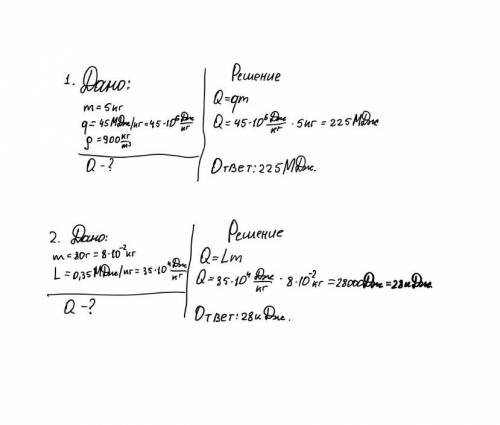 1. Дано:
m = 5кг
q = 45МДж/кг = 45·10⁶ Дж/кг
ρ = 900 кг/м³
Q - ?
Решение
Q = qm
Q = 45·10⁶ Дж/кг · 5кг = 225 МДж
Ответ: 225 МДж.
2. Дано:
m = 80г = 8·10⁻² кг
L = 0,35 МДж/кг = 35·10⁴ Дж/кг
Q - ?
Решение
Q = Lm
Q = 35·10⁴ Дж/кг · 8·10⁻² кг = 28000Дж = 28кДж
Ответ: 28кДж.